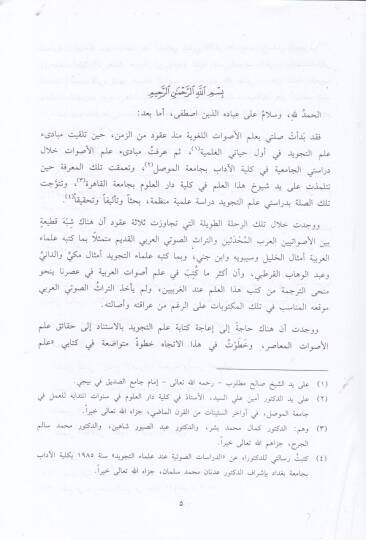 بِسْمِ اللَّهِ الرَّحْمَنِ الرَّحِيمِ
الحمدُ للهِ، وسلامٌ على عباده الذين اصطفى، أما بعد:
فقد بَدأتْ صلتي بعلم الأصوات اللغوية منذ عقود من الزمن، حين تلقيت مبادىء
علم التجويد في أول حياتي العلمية(١)، ثم عرفتُ مبادىء علم الأصوات خلال
دراستي الجامعية في كلية الآداب بجامعة الموصل(٢)، وتعمقت تلك المعرفة حين
تتلمذت على يد شيوخ هذا العلم في كلية دار العلوم بجامعة القاهرة(٣)، وتتوَّجت
تلك الصلة بدراستي علم التجويد دراسة علمية منظمة، بحثاً وتأليفاً وتحقيقاً(٤).
ووجدت خلال تلك الرحلة الطويلة التي تجاوزت ثلاثة عقود أن هناك شِبْهَ قطيعةٍ
بين الأصواتيين العرب المُحْدَثين والتراث الصوتي العربي القديم متمثلًا بما كتبه علماء
العربية أمثال الخليل وسيبويه وابن جني، وبما كتبه علماء التجويد أمثال مكيٍّ والدانيِّ
وعبد الوهاب القرطبي، وأن أكثر ما كُتِبَ في علم أصوات العربية في عصرنا ينحو
منحى الترجمة من كتب هذا العلم عند الغربيين، ولم يأخذ التراثُ الصوتي العربي
موقعه المناسب في تلك المكتوبات على الرغم من عراقته وأصالته.
ووجدت أن هناك حاجةً إلى إعاجة كتابة علم التجويد بالاستناد إلى حقائق علم
الأصوات المعاصر، وخَطَوْتُ في هذا الاتجاه خطوةً متواضعة في كتابي «علم
(١) على يد الشيخ صالح مطلوب - رحمه الله تعالى - إمام جامع الصديق في بيجي.
(٢) على يد الدكتور أمين علي السيد، الأستاذ في كلية دار العلوم في سنوات انتدابه للعمل في
جامعة الموصل، في أواخر الستينات من القرن الماضي، جزاه الله تعالى خيراً.
(٣) وهم: الدكتور كمال محمد بشر، والدكتور عبد الصبور شاهين، والدكتور محمد سالم
الجرح، جزاهم الله تعالى خيراً.
(٤) كتبتُ رسالتي للدكتوراه عن «الدراسات الصوتية عند علماء التجويد» سنة ١٩٨٥ بكلية الآداب
بجامعة بغداد بإشراف الدكتور عدنان محمد سلمان، جزاه الله تعالى خيراً.
٥